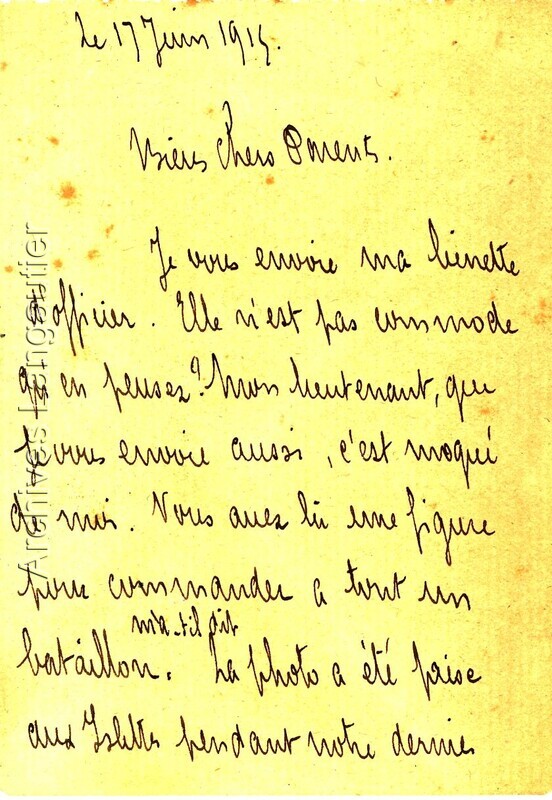 Le 17 Juin 1915.
Biens chers Parents.
Je vous envoie ma binette
d'officier. Elle n'est pas commode
qu'en pensez? Mon lieutenant, que
je vous envoie aussi, c'est moqué
de moi. Vous avez là une figure
pour commander a tout un
m'a-t-il dit
bataillon. La photo a été prise
aux Islettes pendant notre dernier
Archives Longautier